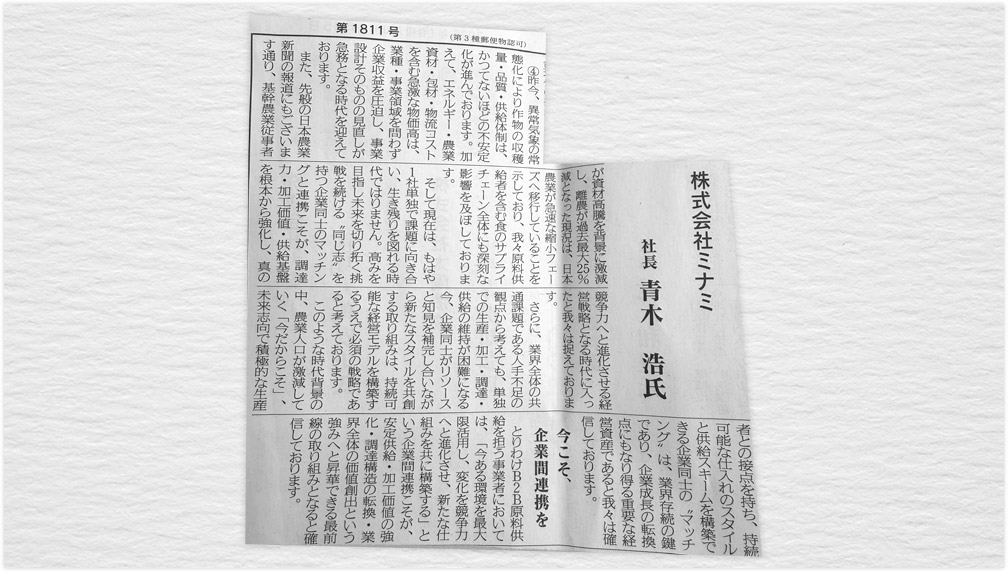 第1811号
(第3種郵便物認可)
株式会社ミナミ
社長 青木 浩氏
④昨今、異常気象の常
態化により作物の収穫
量・品質・供給体制は、
かつてないほどの不安定
化が進んでおります。加
えて、エネルギー・農業
資材・包材・物流コスト
を含む急激な物価高は、
業種・事業領域を問わず
企業収益を圧迫し、事業
設計そのものの見直しが
急務となる時代を迎えて
おります。
また、先般の日本農業
新聞の報道にもございま
す通り、基幹農業従事者
が資材高騰を背景に激減
し、離農が過去最大25%
減となった現況は、日本
農業が急速な縮小フェー
ズへ移行していることを
示しており、我々原料供
給者を含む食のサプライ
チェーン全体にも深刻な
影響を及ぼしておりま
す。
そして現在は、もはや
1社単独で課題に向き合
い、生き残りを図れる時
代ではりません。高みを
目指し未来を切り拓く挑
戦を続ける〝同じ志〟を
持つ企業同士のマッチン
グと連携こそが、調達
力・加工価値・供給基盤
を根本から強化し、真の
競争力へと進化させる経
営戦略となる時代に入っ
たと我々は捉えておりま
す。
さらに、業界全体の共
通課題である人手不足の
観点から考えても、単独
での生産・加工・調達・
供給の維持が困難になる
今、企業同士がリソース
と知見を補完し合いなが
ら新たなスタイルを共創
する取り組みは、持続可
能な経営モデルを構築す
るうえで必須の戦略であ
ると考えております。
このような時代背景の
中、農業人口が激減して
いく「今だからこそ」、
未来志向で積極的な生産
者との接点を持ち、持続
可能な仕入れのスタイル
と供給スキームを構築で
きる企業同士の〝マッチ
ング〟は、業界存続の鍵
であり、企業成長の転換
点にもなり得る重要な経
営資産であると我々は確
信しております。
今こそ、
企業間連携を
とりわけB2B原料供
給を担う事業者において
は、「今ある環境を最大
限活用し、変化を競争力
へと進化させ、新たな仕
組みを共に構築する」と
いう企業間連携こそが、
安定供給・加工価値の強
化・調達構造の転換・業
界全体の価値創出という
強みへと昇華できる最前
線の取り組みとなると確
信しております。